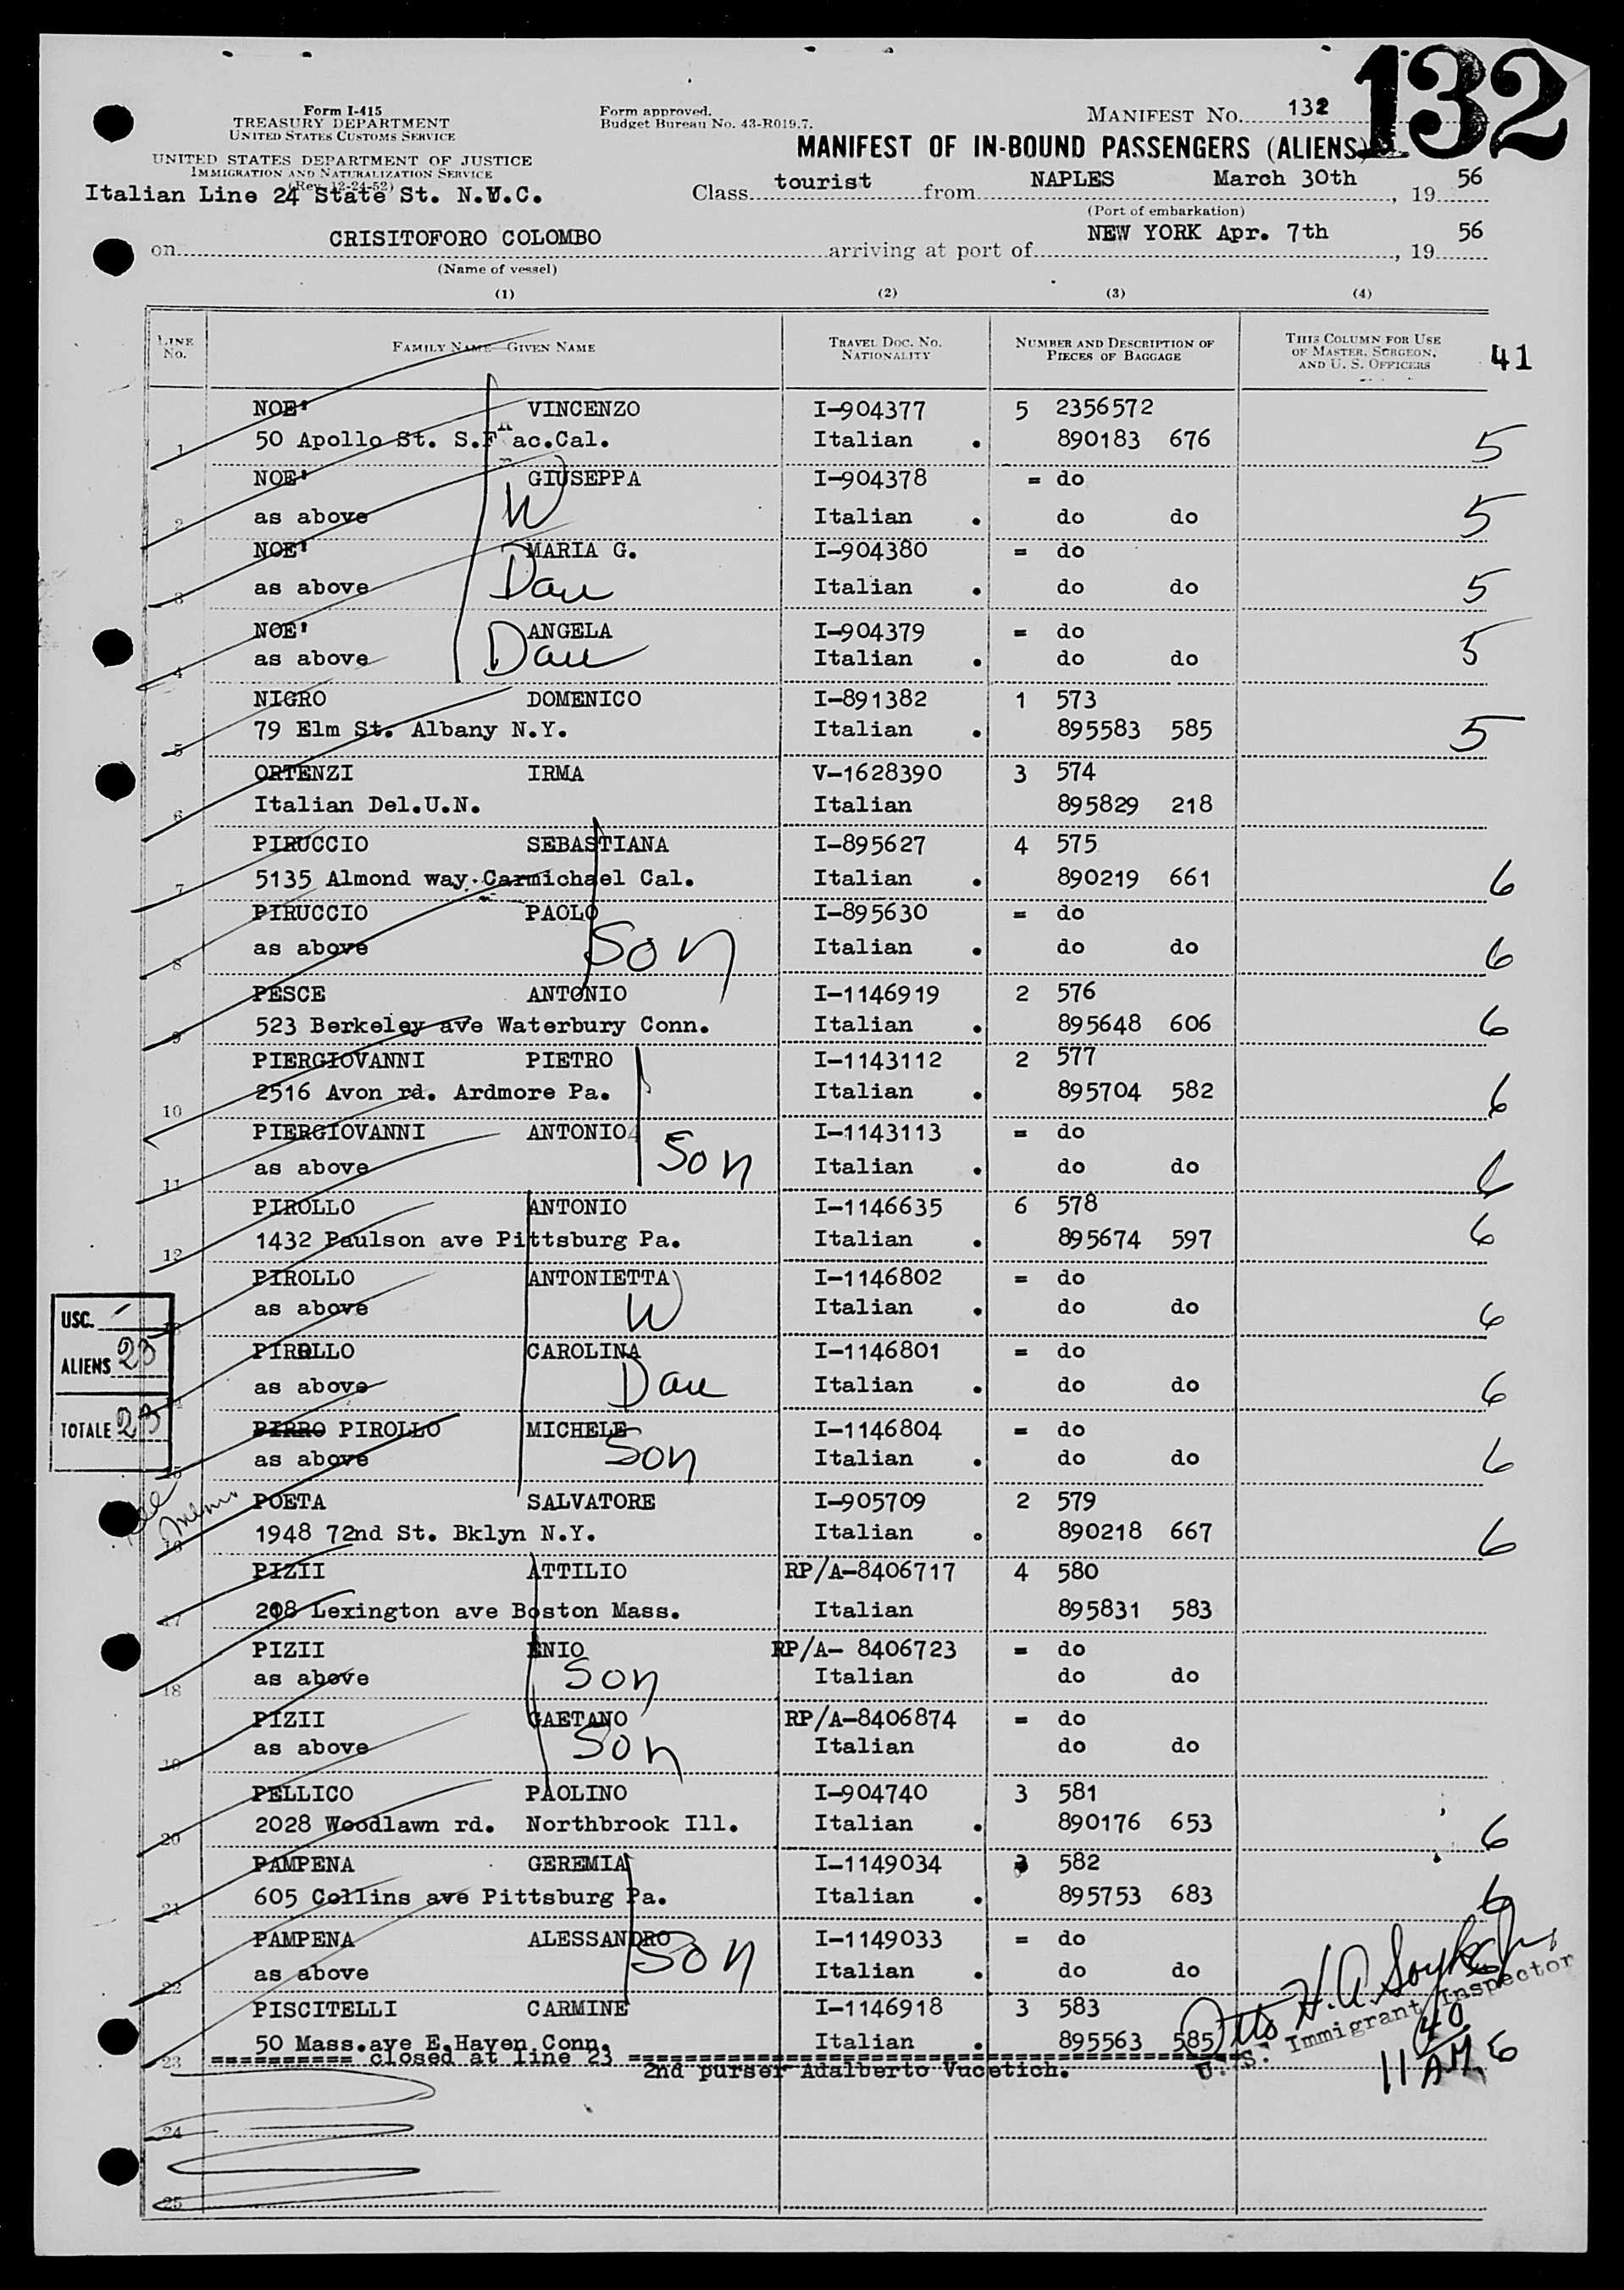 132
Form I-415
TREASURY DEPARTMENT
UNITED STATES CUSTOMS SERVICE
UNITED STATES DEPARTMENT OF JUSTICE
IMMIGRATION AND NATURALIZATION SERVICE
(Rev. 12-24-52)
Italian Line 24 State St. N.Y.C.
Form approved.
Budget Bureau No. 43-R019.7.
MANIFEST NO. 132
MANIFEST OF IN-BOUND PASSENGERS (ALIENS)
Class tourist from NAPLES March 30th, 19 56
(Port of embarkation)
on CRISITOFORO COLOMBO arriving at port of NEW YORK Apr. 7th, 19 56
(Name of vessel)
(1) (2) (3) (4)
LINE NO. FAMILY NAME—GIVEN NAME TRAVEL DOC. NO. NATIONALITY NUMBER AND DESCRIPTION OF PIECES OF BAGGAGE THIS COLUMN FOR USE OF MASTER, SURGEON, AND U. S. OFFICERS 41
NOE' VINCENZO I-904377 5 2356572
1 50 Apollo St. S.F ac.Cal. Italian . 890183 676 5
NOE' GIUSEPPA I-904378 = do
2 as above W Italian . do do 5
NOE' MARIA G. I-904380 = do
3 as above Dau Italian . do do 5
NOE' ANGELA I-904379 = do
4 as above Dau Italian . do do 5
NIGRO DOMENICO I-891382 1 573
5 79 Elm St. Albany N.Y. Italian . 895583 585 5
ORTENZI IRMA V-1628390 3 574
6 Italian Del.U.N. Italian 895829 218
PIRUCCIO SEBASTIANA I-895627 4 575
7 5135 Almond way.Carmichael Cal. Italian . 890219 661 6
PIRUCCIO PAOLO I-895630 = do
8 as above Son Italian . do do 6
PESCE ANTONIO I-1146919 2 576
9 523 Berkeley ave Waterbury Conn. Italian . 895648 606 6
PIERGIOVANNI PIETRO I-1143112 2 577
10 2516 Avon rd. Ardmore Pa. Italian . 895704 582 6
PIERGIOVANNI ANTONIO I-1143113 = do
11 as above Son Italian . do do 6
PIROLLO ANTONIO I-1146635 6 578
12 1432 Paulson ave Pittsburg Pa. Italian . 895674 597 6
PIROLLO ANTONIETTA I-1146802 = do
13 as above W Italian . do do 6
PIROLLO CAROLINA I-1146801 = do
14 as above Dau Italian . do do 6
PIRRO PIROLLO MICHELE I-1146804 = do
15 as above Son Italian . do do 6
USC. -
ALIENS 23
TOTALE 23
See memo
POETA SALVATORE I-905709 2 579
16 1948 72nd St. Bklyn N.Y. Italian . 890218 667 6
PIZII ATTILIO RP/A-8406717 4 580
17 208 Lexington ave Boston Mass. Italian 895831 583
PIZII ENIO RP/A- 8406723 = do
18 as above Son Italian do do
PIZII GAETANO RP/A-8406874 = do
19 as above Son Italian do do
PELLICO PAOLINO I-904740 3 581
20 2028 Woodlawn rd. Northbrook Ill. Italian . 890176 653 6
PAMPENA GEREMIA I-1149034 3 582
21 605 Collins ave Pittsburg Pa. Italian . 895753 683 6
PAMPENA ALESSANDRO I-1149033 = do
22 as above Son Italian . do do
PISCITELLI CARMINE I-1146918 3 583
23 50 Mass.ave E.Haven Conn. Italian . 895563 585 6
========== closed at line 23 ==========
2nd purser Adalberto Vucetich.
Otto H.A.
U. S. Immigrant Inspector
11 40 AM
24
25